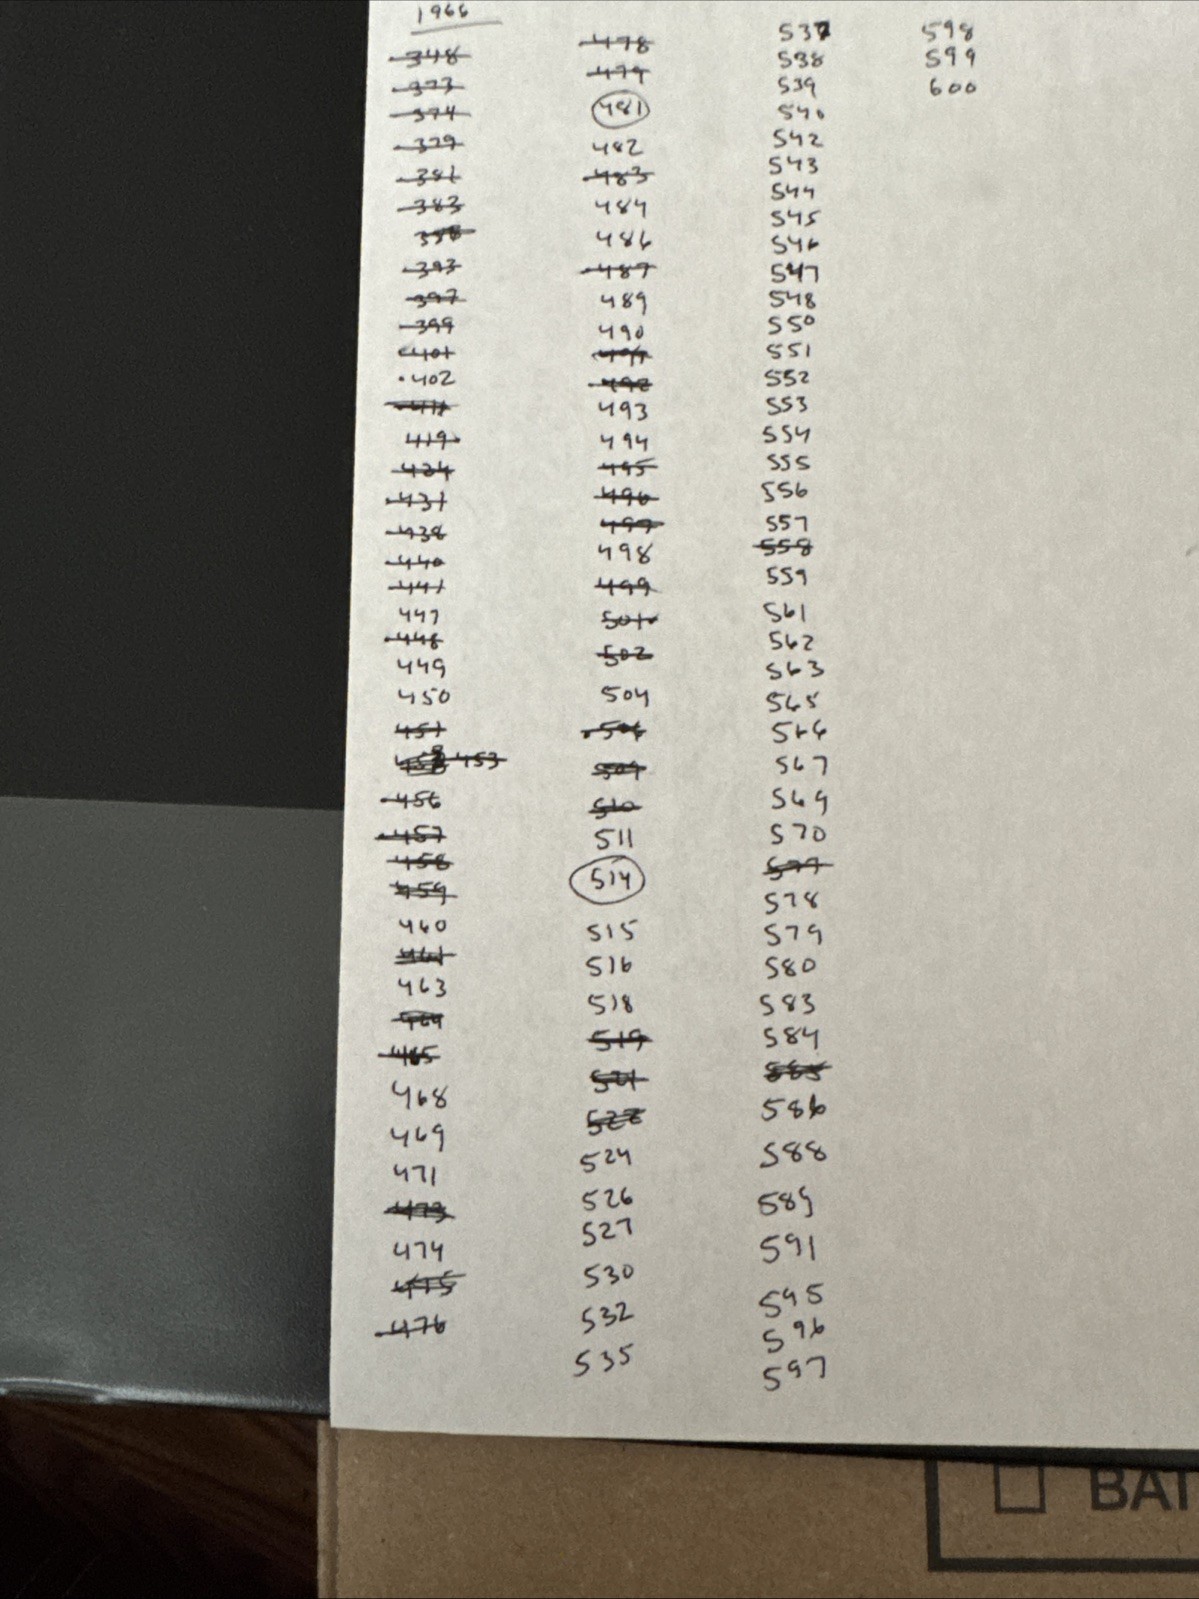 1966
348
373
374
379
381
383
388
393
397
399
401
402
411
419
424
431
438
440
441
447
448
449
450
451
453
456
457
458
459
460
461
463
464
465
468
469
471
473
474
475
476
478
479
481
482
483
484
486
487
489
490
491
492
493
494
495
496
497
498
499
501
502
504
506
509
510
511
514
515
516
518
519
521
522
524
526
527
530
532
535
537
538
539
540
542
543
544
545
546
547
548
550
551
552
553
554
555
556
557
558
559
561
562
563
565
566
567
569
570
577
578
579
580
583
584
585
586
588
589
591
595
596
597
598
599
600
BAT